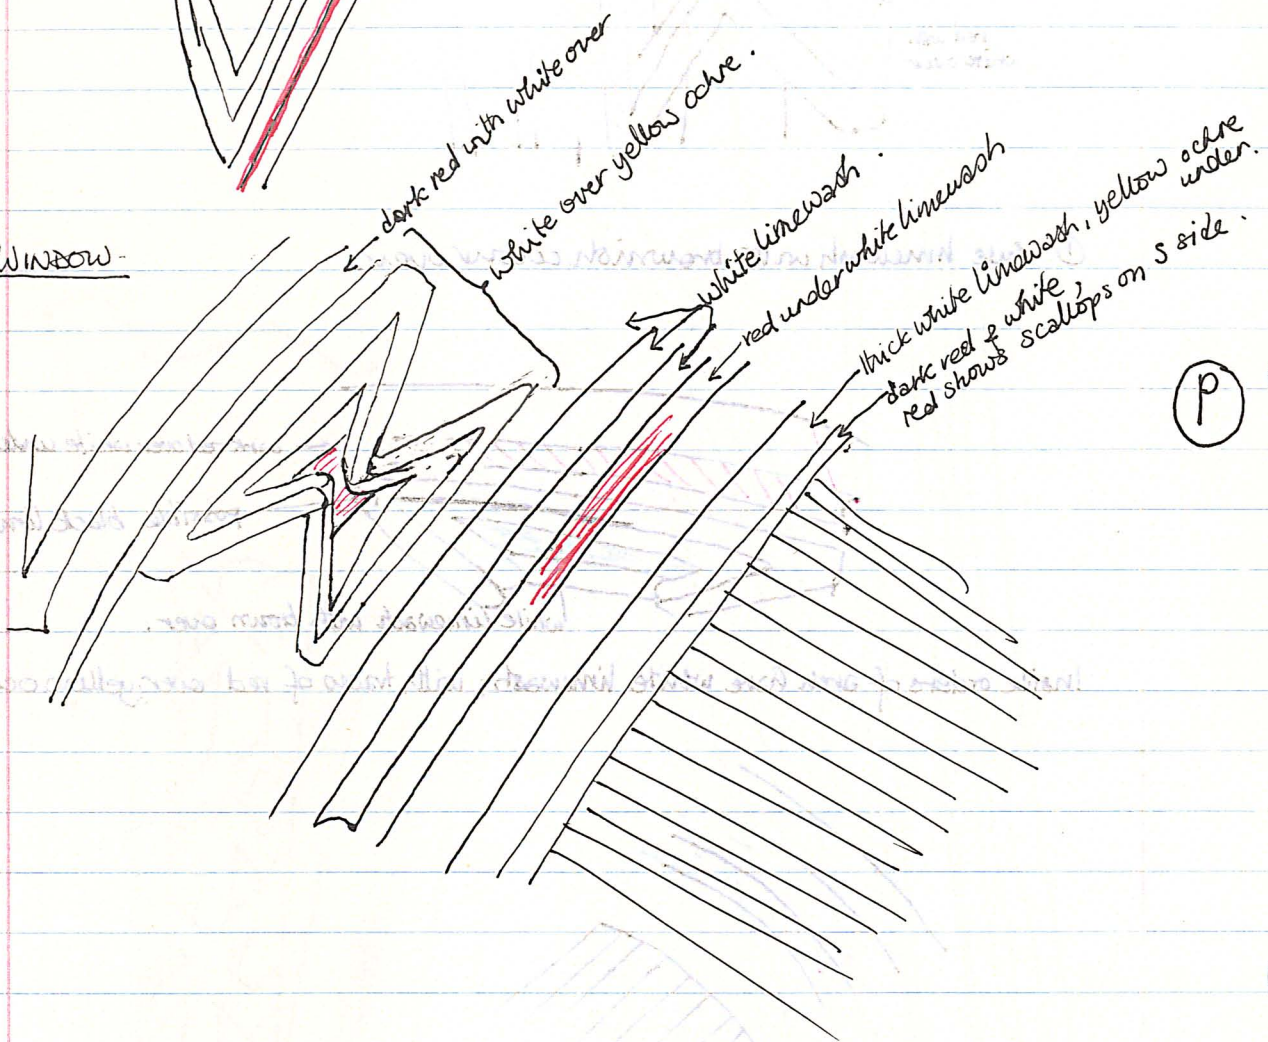 dark red with white over
white over yellow ochre.
WINDOW
white limewash.
red under white limewash
thick white limewash, yellow ochre
under.
dark red & white,
red shows scallops on s side.
P